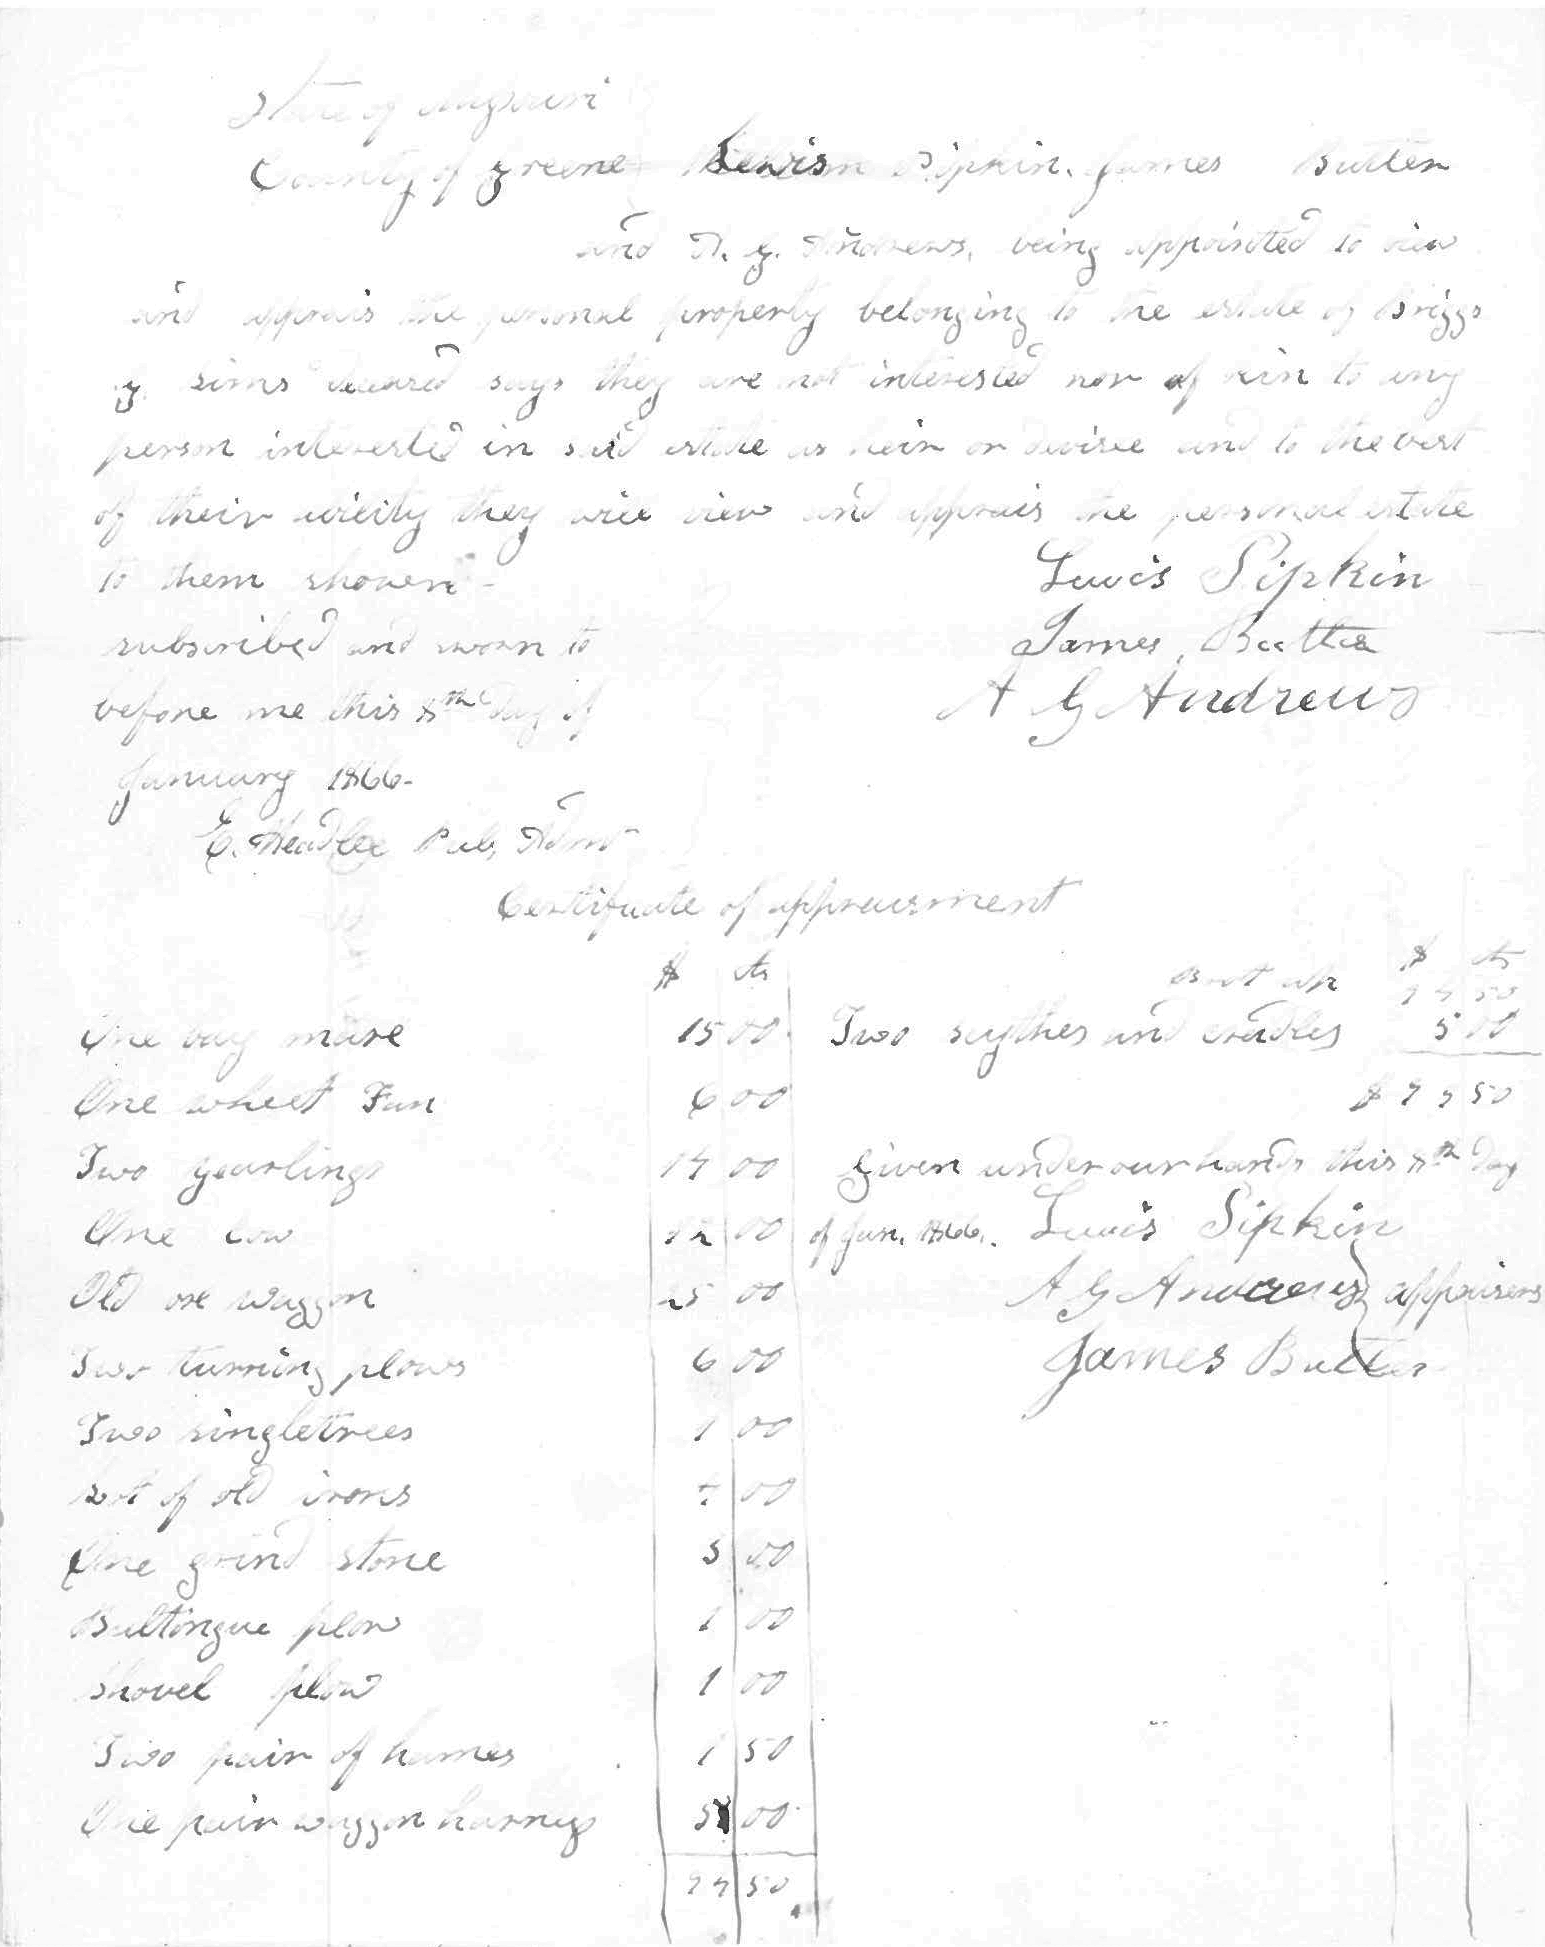 State of Missouri
County of Greene Lewis Pipkin. James Butter
and A. G. Andrews, being appointed to view
and apprais the personal property belonging to the estate of Briggs
G. Sims deceased says they are not interested nor of kin to any
person interested in said estate as heir or devisee and to the best
of their ability they will view and apprais the personal estate
to them shown -
Lewis Pipkin
James Butter
A G Andrews
subscribed and sworn to
before me this 8th Day of
January 1866-
E. Headlee Pub, Admr
Certificate of appraisment
$ cts
One bay mare 15 00
One wheet Fan 6 00
Two yearlings 14 00
One cow 12 00
Old ore waggon 25 00
Two turning plows 6 00
Two singletrees 1 00
Lot of old irons 4 00
One grind stone 3 00
Bultongue plow 1 00
Shovel plow 1 00
Two pair of hames 1 50
One pair waggon harness 5 00
94 50
$ cts
Brot up 94 50
Two scythes and cradles 5 00
$ 99 50
Given under our hands this 8th Day
of Jan. 1866. Lewis Pipkin
A G Andrews appraisers
James Butter